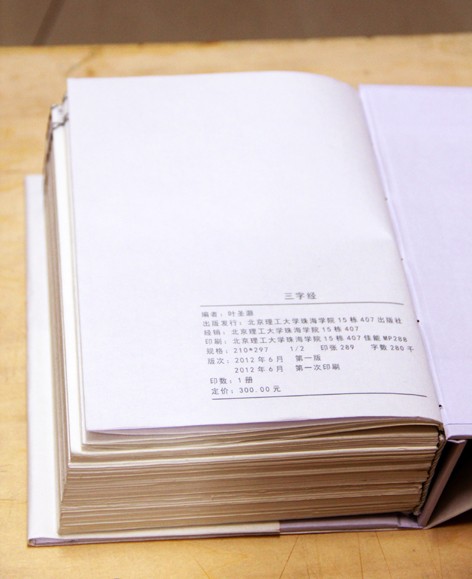 三字经
编者：叶圣灏
出版发行：北京理工大学珠海学院15栋407出版社
经销：北京理工大学珠海学院15栋407
印刷：北京理工大学珠海学院15栋407佳能MP288
规格：210*297 1/2 印张289 字数280千
版次：2012年6月 第一版
2012年6月 第一次印刷
印数：1册
定价：300.00元